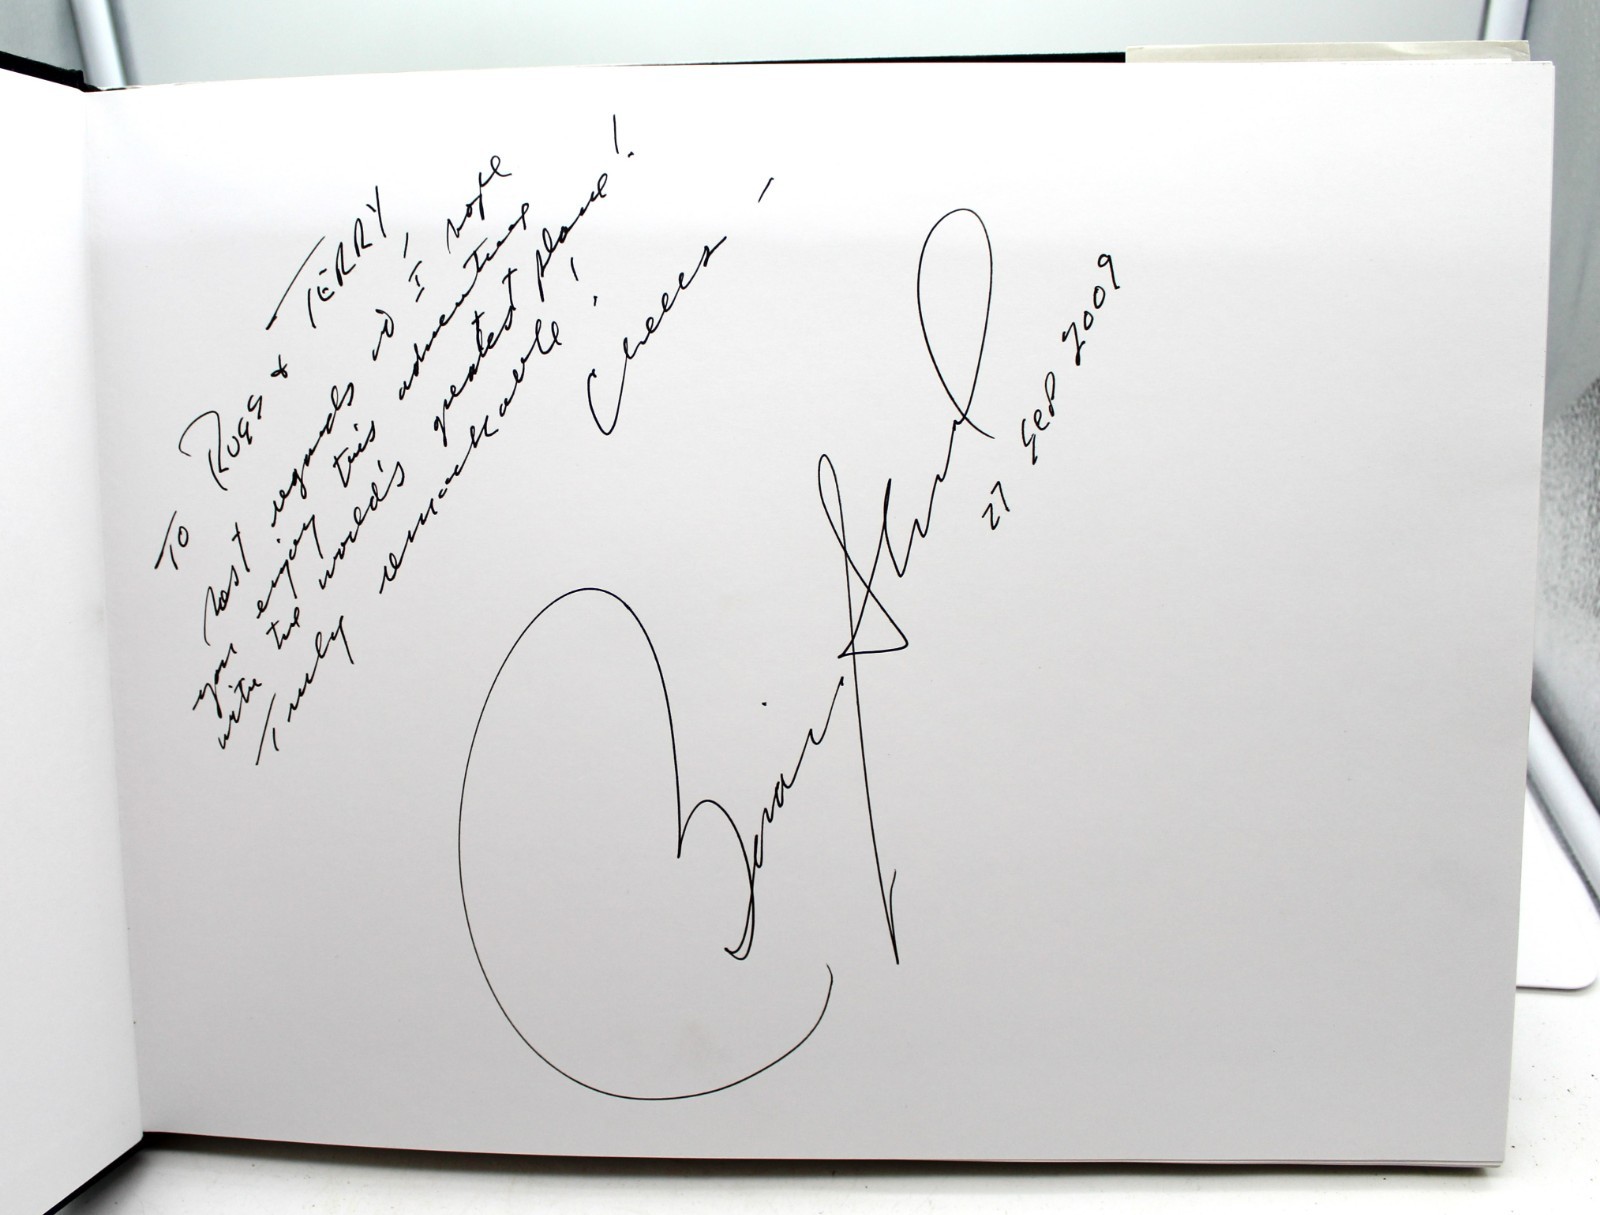 TO RUSS & TERRY,
Best regards & I hope
you enjoy this adventure
with the world's greatest plane!
Truly remarkable!
Cheers -
Brian Shul
27 SEP 2009